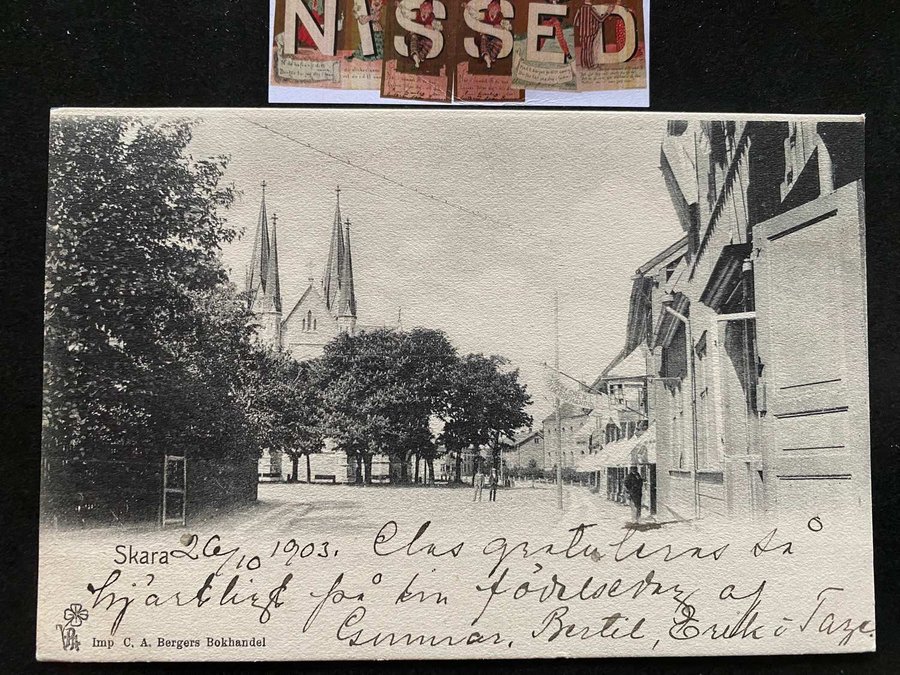 NISSED
Skara 26/10 1903. Clas gratuleras så
hjärtligt på din födelsedag af
Gunnar, Bertil, Erik o Tage.
Imp C. A. Bergers Bokhandel